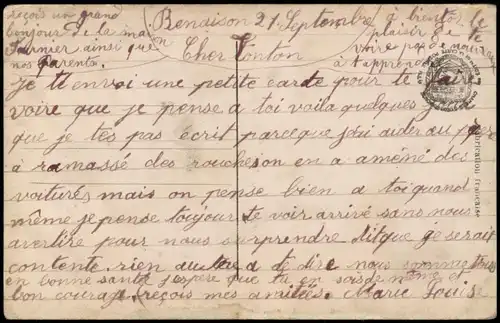 Reçois un grand
bonjour de la maison
Fournier ainsi que
nos parents.
Bendaison 21 Septembre
Cher Tonton
à bientot le
plaisir de te
voire pas de nouveau
à t apprendre
je t'envoi une petite carde pour te faire
voire que je pense a toi voila quelques jours
que je tes pas écrit parceque jai aider au père
à ramassé des rouches on en a améné des
voitures, mais on pense bien a toi quand
même je pense toujour te voir arrivé sans nous
avertire pour nous surprendre dit que ge serait
contente. rien autre a te dire nous somme tous
en bonne santé j'espère que tu en sois de meme et
bon courage. reçois mes amitiées. Marie Louise